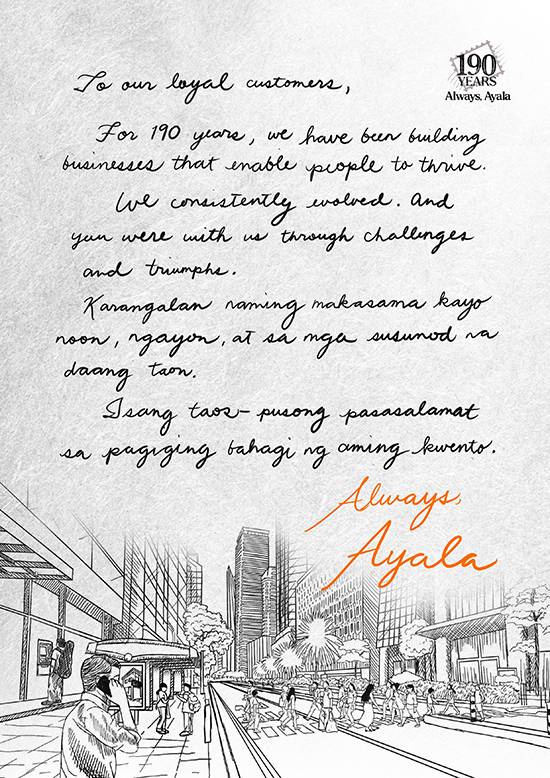 190
YEARS
Always, Ayala
To our loyal customers,
For 190 years, we have been building
businesses that enable people to thrive.
We consistently evolved. And
you were with us through challenges
and triumphs.
Karangalan naming makasama kayo
noon, ngayon, at sa mga susunod na
daang taon.
Isang taos-pusong pasasalamat
sa pagiging bahagi ng aming kwento.
Always,
Ayala